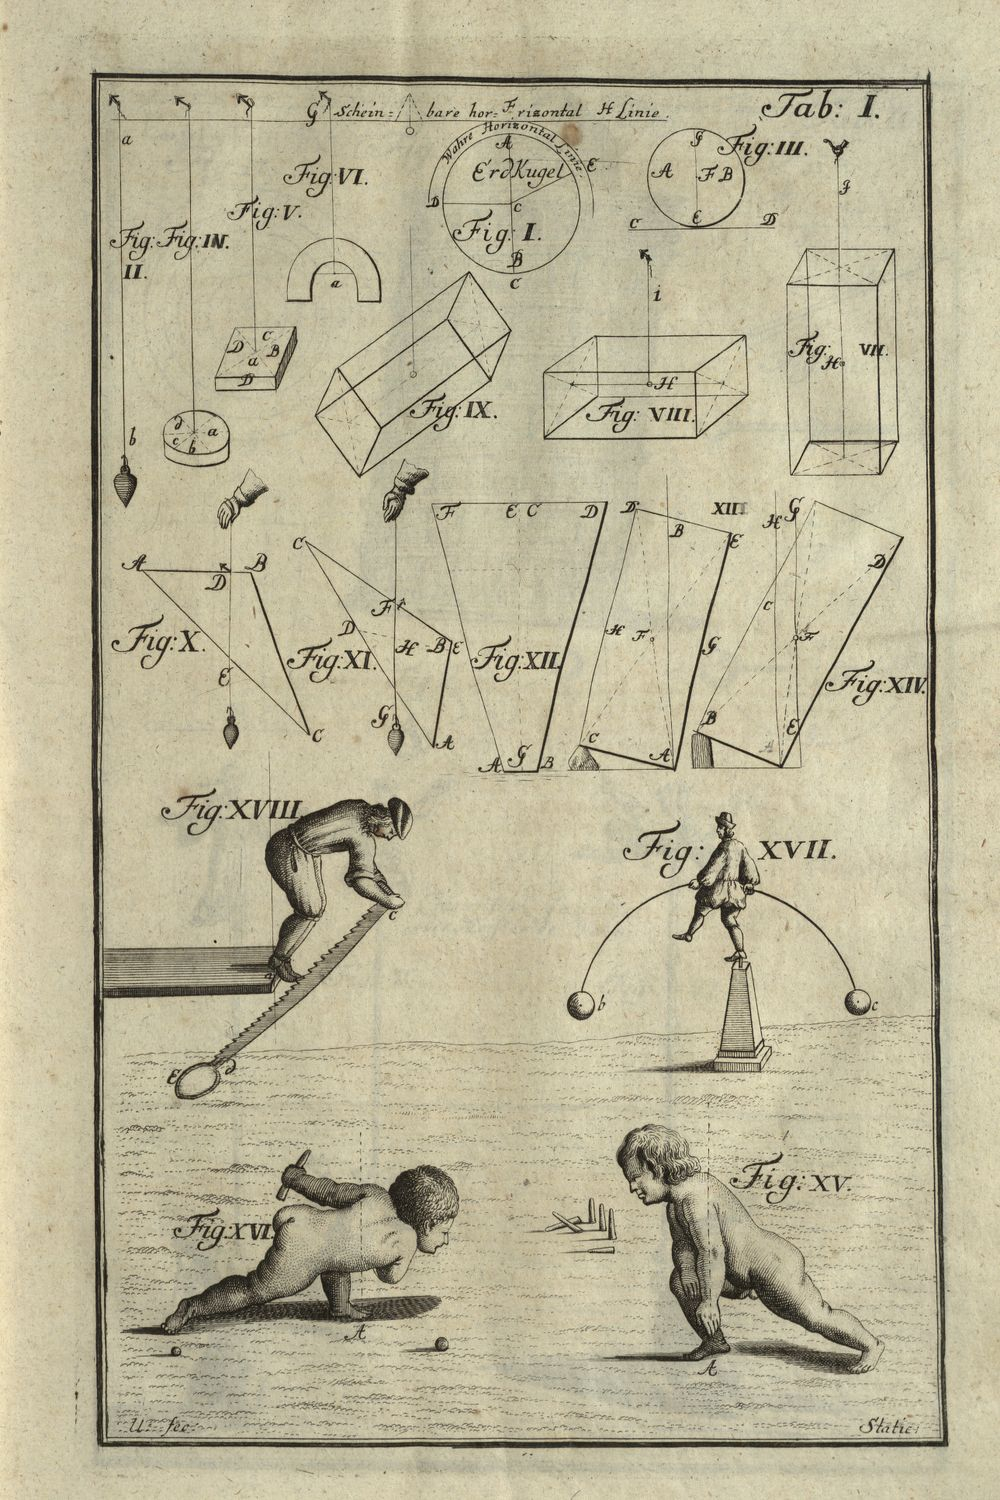 Tab: I.
G Schein= bare hor= F rizontal H Linie.
Wahre Horizontal Linie.
A
ErdKugel
E
D
C
Fig: I.
B
C
G
Fig: III.
A
F B
E
C
D
a
Fig: II.
b
Fig: IV.
d
a
c
b
Fig: V.
D
C
a
B
D
Fig: VI.
a
g
Fig: VII.
H
i
H
Fig: VIII.
Fig: IX.
A
B
D
Fig: X.
E
C
C
F
D
H
B
E
Fig: XI.
G
A
F
E C
D
Fig: XII.
A
G
B
D
B
XIII
E
H
F
G
C
A
G
H
D
C
F
Fig: XIV.
B
E
A
Fig: XVIII.
c
a
d
E
Fig: XVII.
b
c
Fig: XVI.
A
Fig: XV.
A
U= fec.
Static: